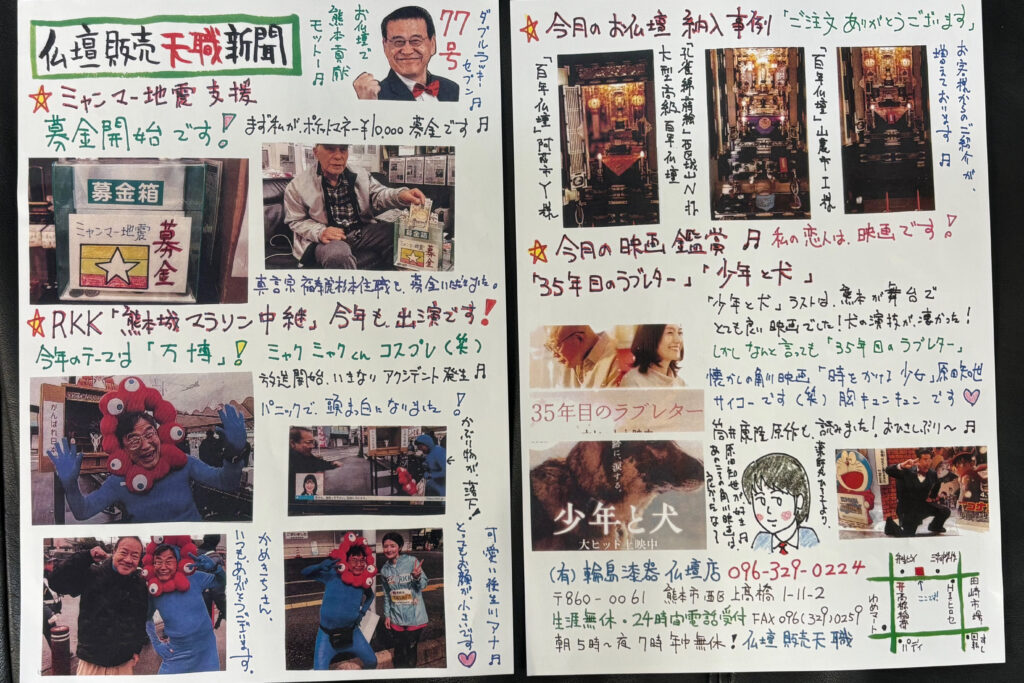 仏壇販売天職新聞
お仏壇で
熊本貢献
モットー♬
77号
ダブルラッキーセブン♬
☆ミャンマー地震支援
募金開始です! まず私が、ポケットマネー¥10,000募金です♬
募金箱
ミャンマー地震
募金
募金箱
ミャンマー地震
募金
真言宗 福寿院杉本住職も、募金いただきました。
☆RKK「熊本城マラソン中継」今年も、出演です!
今年のテーマは「万博」! ミャクミャクくん コスプレ(笑)
放送開始、いきなりアクシデント発生♬
パニックで、頭まっ白になりました!
がんばれ
かぶり物が、落下!
かめきちさん、
いつもありがとうございます。
可愛い後生いアナ♬
とってもお顔が小さいです♡
☆今月のお仏壇 納入事例「ご注文ありがとうございます」
お客様からのご紹介が、
増えております♬
「百年仏壇」山鹿市I様
「孔雀錦蒔絵」西区城山N様
大型高級百年仏壇
「百年仏壇」阿蘇市Y様
☆今月の映画鑑賞♬ 私の恋人は、映画です!
「35年目のラブレター」「少年と犬」
「少年と犬」ラストは、熊本が舞台で
とても良い映画でした!犬の演技が、凄かった!
しかしなんと言っても「35年目のラブレター」
懐かしの角川映画「時をかける少女」原田知世
サイコーです(笑)胸キュンキュンです♡
筒井康隆原作も、読みました!おひさしぶり〜♬
35年目のラブレター
大ヒット上映中
涙する
少年と犬
大ヒット上映中
薬師丸ひろ子より、
原田知世が好き♬
あのころの角川映画は、
(有)輪島漆器仏壇店 096-329-0224
〒860-0061 熊本市西区上高橋1-11-2
生涯無休・24時間電話受付 FAX 096(329)0259
朝5時〜夜7時年中無休!仏壇販売天職
田崎市場
高橋稲荷
ゆめマート